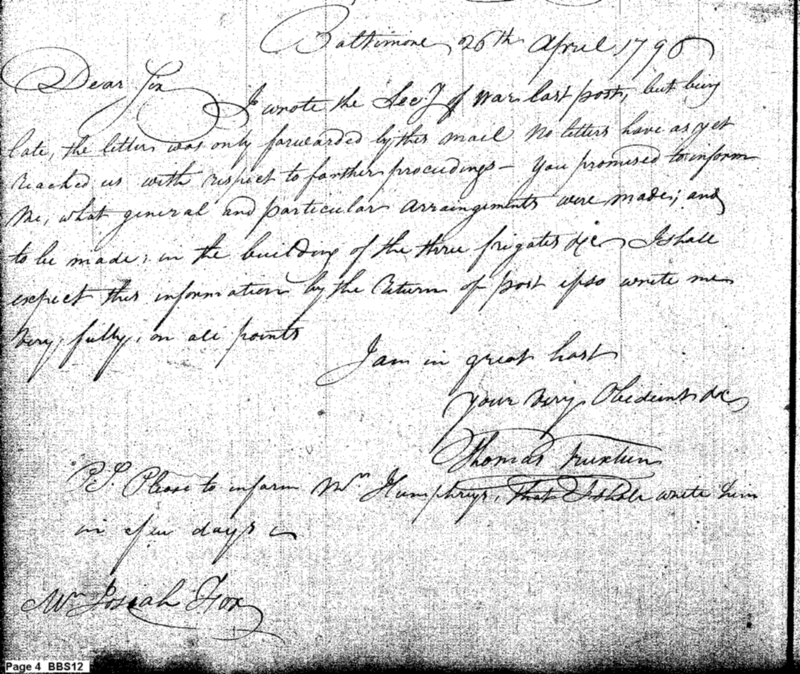 Baltimore 26th April 1796
Dear Fox
I wrote the Secy of War last post, but being
late, the letter was only forwarded by this mail No letters have as yet
reached us with respect to farther proceedings — You promised to inform
me, what general and particular arrangements were made; and
to be made; in the building of the three frigates &c I shall
expect this information by the return of post if so write me
very, fully, on all points
I am in great hast
Your Very Obedient &c
Thomas Truxtun
P.S. Please to inform Mr Humphrys, that I shall write him
in a few days
Mr Josiah Fox
Page 4 BBS12